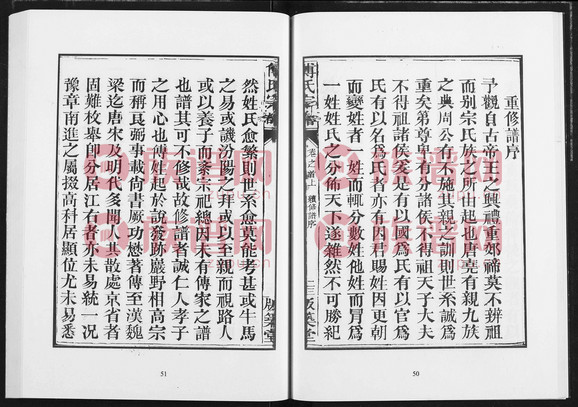 重修譜序
予觀自古帝王之興禮重郊禘莫不辨祖
而别宗氏族之所由起也唐堯有親九族
之典周公有不施其親之訓則世系誠爲
重矣第尊卑有分諸侯不得祖天子大夫
不得祖諸侯爰是有以國爲氏有以官爲
氏有以名爲氏者亦有因君賜姓因更朝
而變姓者一姓而輒分數姓他姓而冐爲
一姓姓氏之分佈天下遂雜然不可勝紀
傅氏宗譜
卷之首上
重修譜序
版築堂
50
傅氏宗譜
版築堂
然姓氏愈繁則世系愈莫能考甚或牛馬
之易或譏汾陽之拜或以至親而視路人
或以養子而紊宗祀總因未有傳家之譜
也譜其可不修哉故修譜者誠仁人孝子
之用心也傅姓起於說發跡巖野相高宗
而稱良弼事載尚書厥功懋著傳至漢魏
梁迄唐宋及明代多聞人其散處京省者
固難枚舉卽分居江右者亦未易統一况
豫章南進之屬掇高科居顯位尤未易悉
51